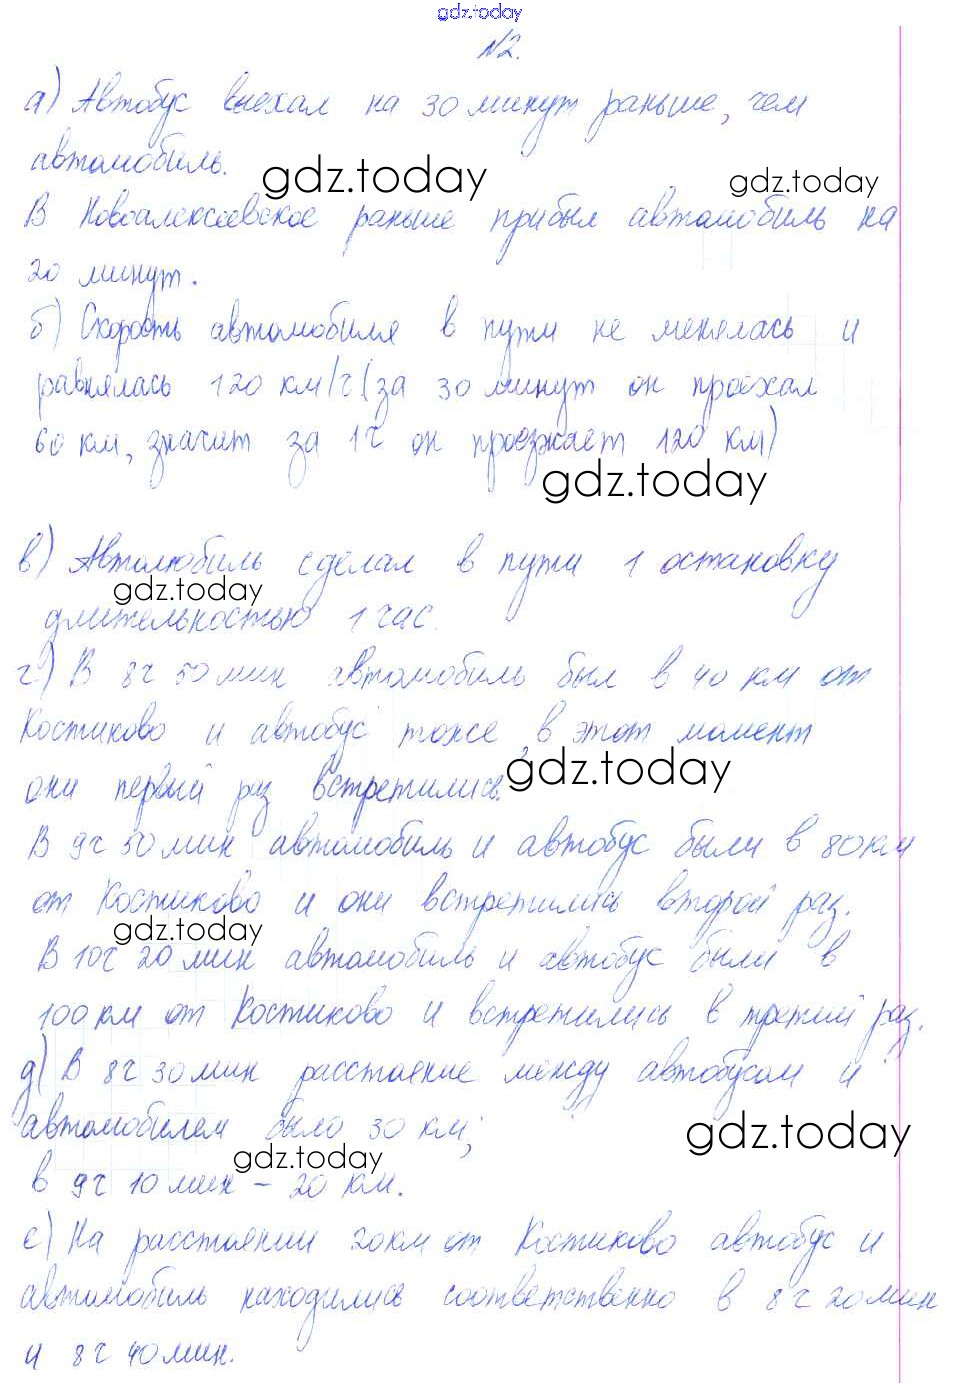 gdz.today
№2.
а) Автобус выехал на 30 минут раньше, чем
автомобиль.
gdz.today
gdz.today
В Новоалексеевское раньше прибыл автомобиль на
20 минут.
б) Скорость автомобиля в пути не менялась и
равнялась 120 км/ч (за 30 минут он проехал
60 км, значит за 1 ч он проезжает 120 км)
gdz.today
в) Автолюбиль сделал в пути 1 остановку
gdz.today
длительностью 1 час.
г) В 8 ч 50 мин автомобиль был в 40 км от
Костиково и автобус тоже, в этот момент
они первый раз встретились.
gdz.today
В 9 ч 50 мин автомобиль и автобус были в 80 км
от Костиково и они встретились второй раз.
gdz.today
В 10 ч 20 мин автомобиль и автобус были в
100 км от Костиково и встретились в третий раз.
д) В 8 ч 30 мин расстояние между автобусом и
автомобилем было 30 км;
gdz.today
gdz.today
в 9 ч 10 мин – 20 км.
е) На расстоянии 20 км от Костиково автобус и
автомобиль находились соответственно в 8 ч 20 мин
и 8 ч 40 мин.